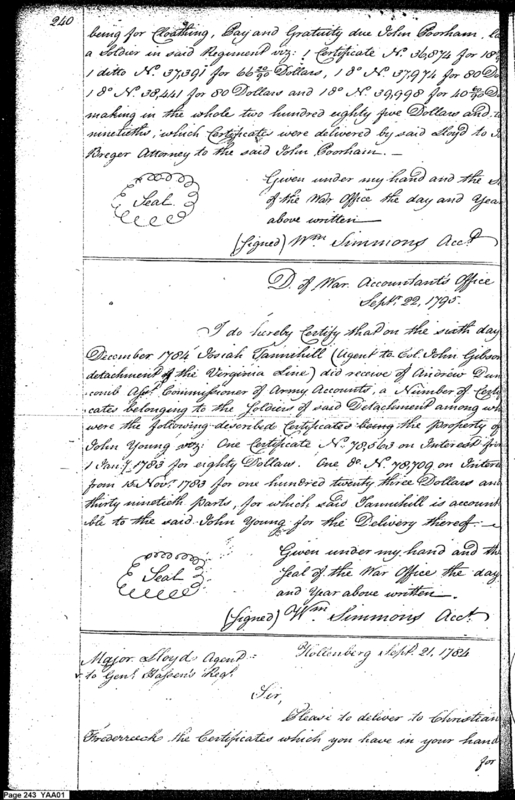 240
being for Cloathing, Pay and Gratuity due John Poorham,
a Soldier in said Regiment viz: 1 Certificate No. 36,874 for
1 ditto No. 37,391 for 66 Dollars, 1 do. No. 37,974 for 80
1 do. No. 38,441 for 80 Dollars and 1 do. No. 39,998 for 40
making in the whole two hundred eighty five Dollars and
ninetieths; which Certificates were delivered by said Lloyd to
Breger Attorney to the said John Poorham.—
Seal
Given under my hand and the
of the War Office the day and Year
above written
(Signed) Wm Simmons Acct.
D. of War. Accountant's Office
Sept. 22, 1795.
I do hereby Certify that on the sixth day
December 1784 Josiah Tannihill (Agent to Col. John Gibson
detachment of the Virginia Line) did receive of Andrew Dun
comb Asst. Commissioner of Army Accounts, a Number of Certifi
cates belonging to the Soldiers of said Detachment among wh
were the following described Certificates being the property of
John Young viz: One Certificate No. 78,563 on Interest from
1 Jany. 1783 for eighty Dollars. One do. No. 78,709 on Interest
from 15 Novr. 1783 for one hundred twenty three Dollars and
thirty ninetieth parts, for which said Tannihill is account
ble to the said John Young for the Delivery thereof.—
Seal
Given under my hand and the
Seal of the War Office the day
and Year above written.
(Signed) Wm Simmons Acct.
Major Lloyd Agent
to Genl. Hazen's Regt.
Killenberg Sept. 21. 1784
Sir,
Please to deliver to Christian
Frederreeck the Certificates which you have in your hand
for
Page 243 YAA01